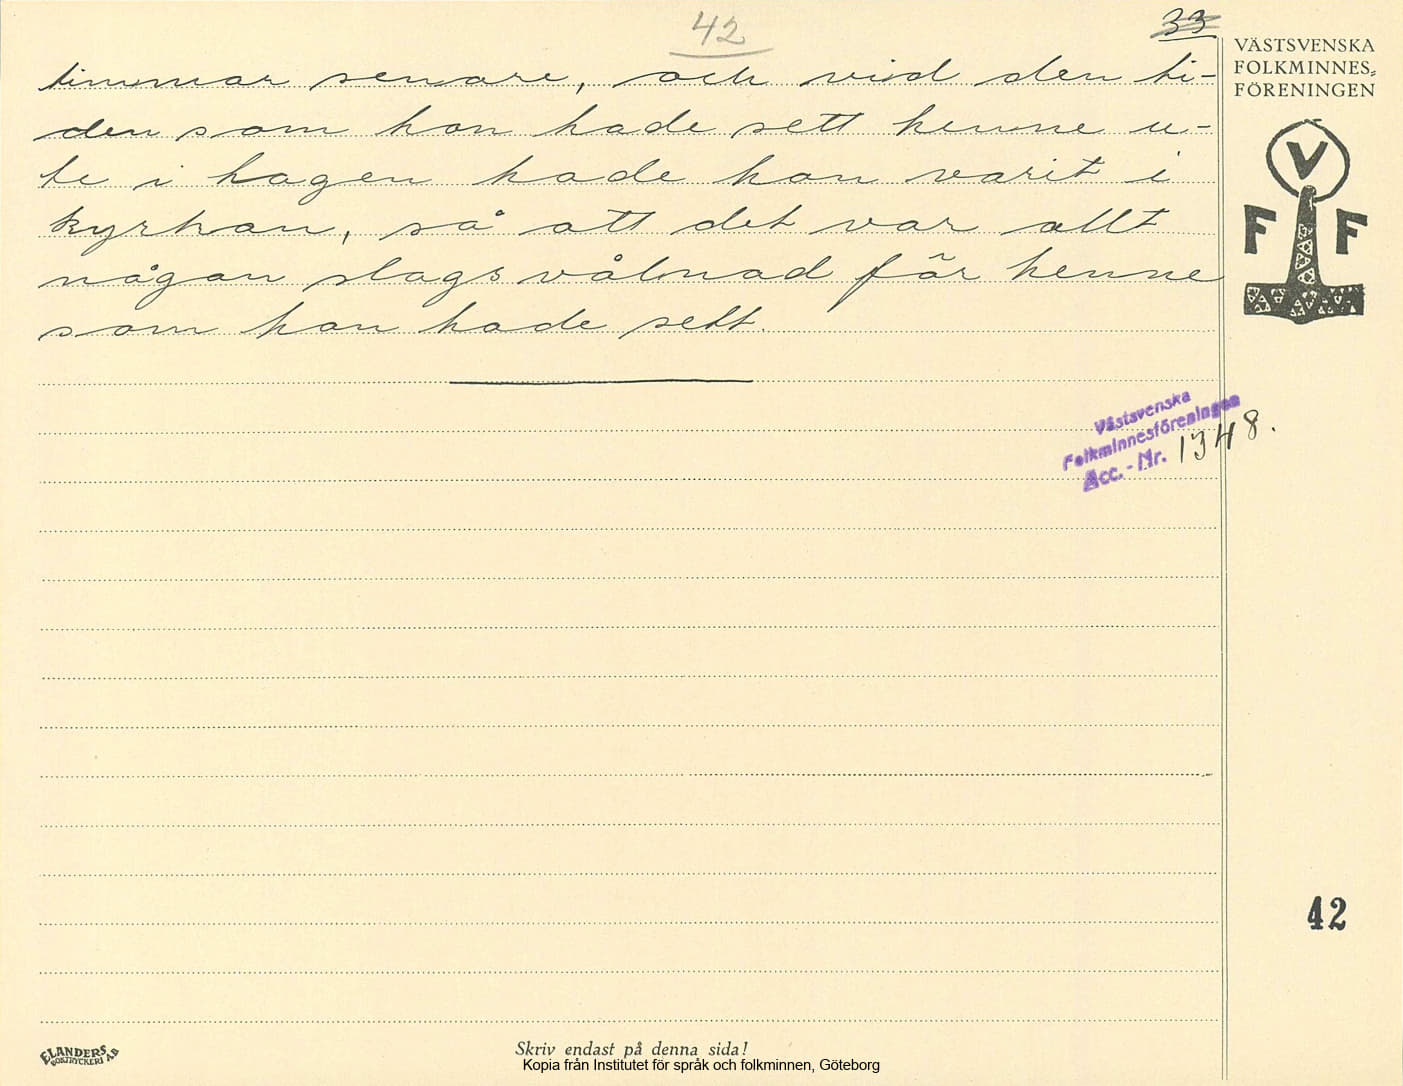 42
33
timmar senare, och vid den ti-
den som han hade sett henne u-
te i hagen hade hon varit i
kyrkan, så att det var allt
någon slags vålnad för henne
som han hade sett.
VÄSTSVENSKA
FOLKMINNES-
FÖRENINGEN
V
F F
Västsvenska
Folkminnesföreningen
Acc. - Nr. 1348.
42
ELANDERS
BOKTRYCKERI AB
Skriv endast på denna sida!
Kopia från Institutet för språk och folkminnen, Göteborg